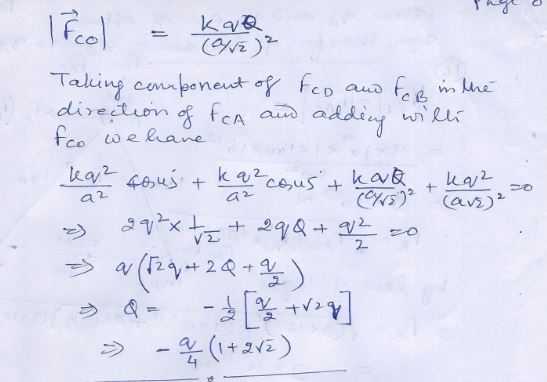 Page
|F⃗co| = kqQ/(a/√2)²
Taking component of FCD and FCB in the
direction of FCA and adding with
Fco we have
kq²/a² cos45 + kq²/a² cos45 + kqQ/(a/√2)² + kq²/(a√2)² = 0
⇒ 2q² × 1/√2 + 2qQ + q²/2 = 0
⇒ q(√2q + 2Q + q/2)
⇒ Q = -1/2 [q/2 + √2q]
⇒ -q/4 (1 + 2√2)